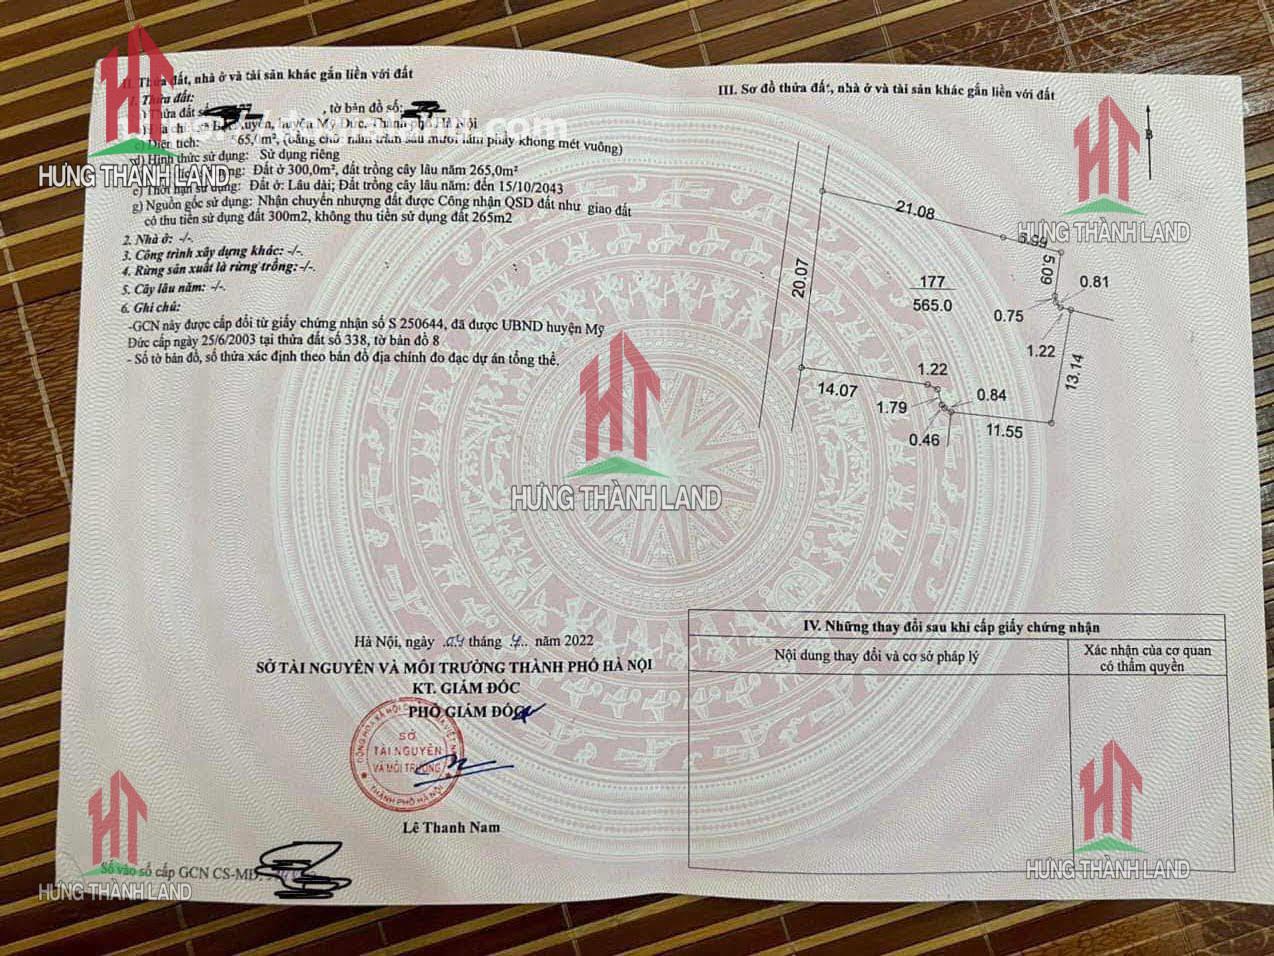 II. Thửa đất, nhà ở và tài sản khác gắn liền với đất
1. Thửa đất:
Thửa đất số , tờ bản đồ số:
huyện Mỹ Đức, Thành phố Hà Nội
c) Diện tích: 565,0m², (bằng chữ: năm trăm sáu mươi lăm phẩy không mét vuông)
d) Hình thức sử dụng: Sử dụng riêng
Đất ở 300,0m², đất trồng cây lâu năm 265,0m²
e) Thời hạn sử dụng: Đất ở: Lâu dài; Đất trồng cây lâu năm: đến 15/10/2043
g) Nguồn gốc sử dụng: Nhận chuyển nhượng đất được Công nhận QSD đất như giao đất
có thu tiền sử dụng đất 300m2, không thu tiền sử dụng đất 265m2
2. Nhà ở: -/-.
3. Công trình xây dựng khác: -/-.
4. Rừng sản xuất là rừng trồng: -/-.
5. Cây lâu năm: -/-.
6. Ghi chú:
-GCN này được cấp đổi từ giấy chứng nhận số S 250644, đã được UBND huyện Mỹ
Đức cấp ngày 25/6/2003 tại thửa đất số 338, tờ bản đồ 8
- Số tờ bản đồ, số thửa xác định theo bản đồ địa chính đo đạc dự án tổng thể.
Hà Nội, ngày 04 tháng 7 năm 2022
SỞ TÀI NGUYÊN VÀ MÔI TRƯỜNG THÀNH PHỐ HÀ NỘI
KT. GIÁM ĐỐC
PHÓ GIÁM ĐỐC
SỞ
TÀI NGUYÊN
VÀ MÔI TRƯỜNG
THÀNH PHỐ HÀ NỘI
Lê Thanh Nam
Số vào sổ cấp GCN CS-MĐ:
III. Sơ đồ thửa đất, nhà ở và tài sản khác gắn liền với đất
B
21.08
5.09
0.81
20.07
177
565.0
0.75
1.22
13.14
1.22
14.07
1.79
0.84
0.46
11.55
IV. Những thay đổi sau khi cấp giấy chứng nhận
Nội dung thay đổi và cơ sở pháp lý
Xác nhận của cơ quan
có thẩm quyền
HƯNG THÀNH LAND
HƯNG THÀNH LAND
HƯNG THÀNH LAND
HƯNG THÀNH LAND
HƯNG THÀNH LAND